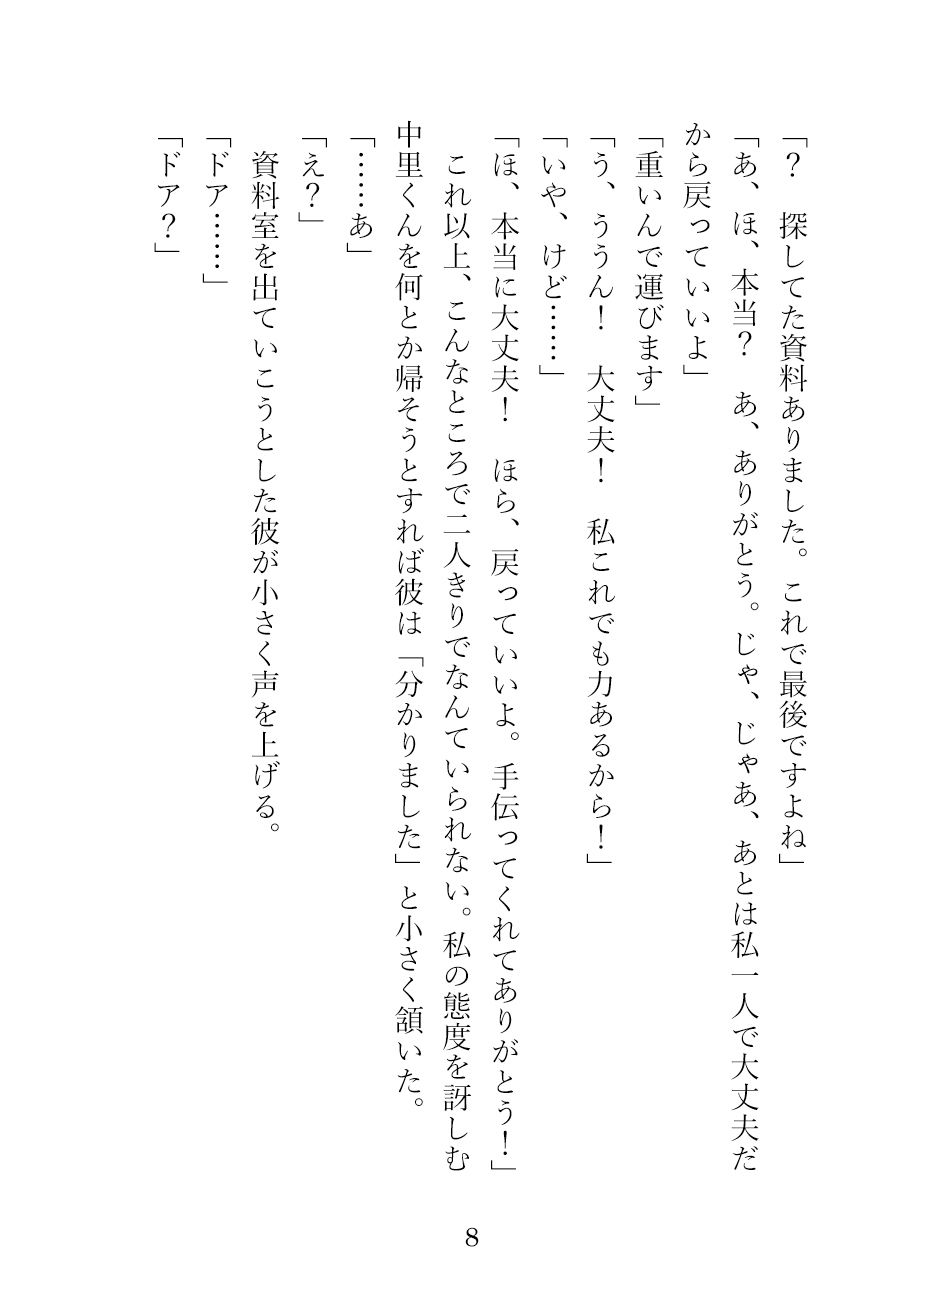 「？　探してた資料ありました。これで最後ですよね」
「あ、ほ、本当？　あ、ありがとう。じゃ、じゃあ、あとは私一人で大丈夫だ
から戻っていいよ」
「重いんで運びます」
「う、ううん！　大丈夫！　私これでも力あるから！」
「いや、けど……」
「ほ、本当に大丈夫！　ほら、戻っていいよ。手伝ってくれてありがとう！」
　これ以上、こんなところで二人きりでなんていられない。私の態度を訝しむ
中里くんを何とか帰そうとすれば彼は「分かりました」と小さく頷いた。
「……あ」
「え？」
　資料室を出ていこうとした彼が小さく声を上げる。
「ドア……」
「ドア？」
8